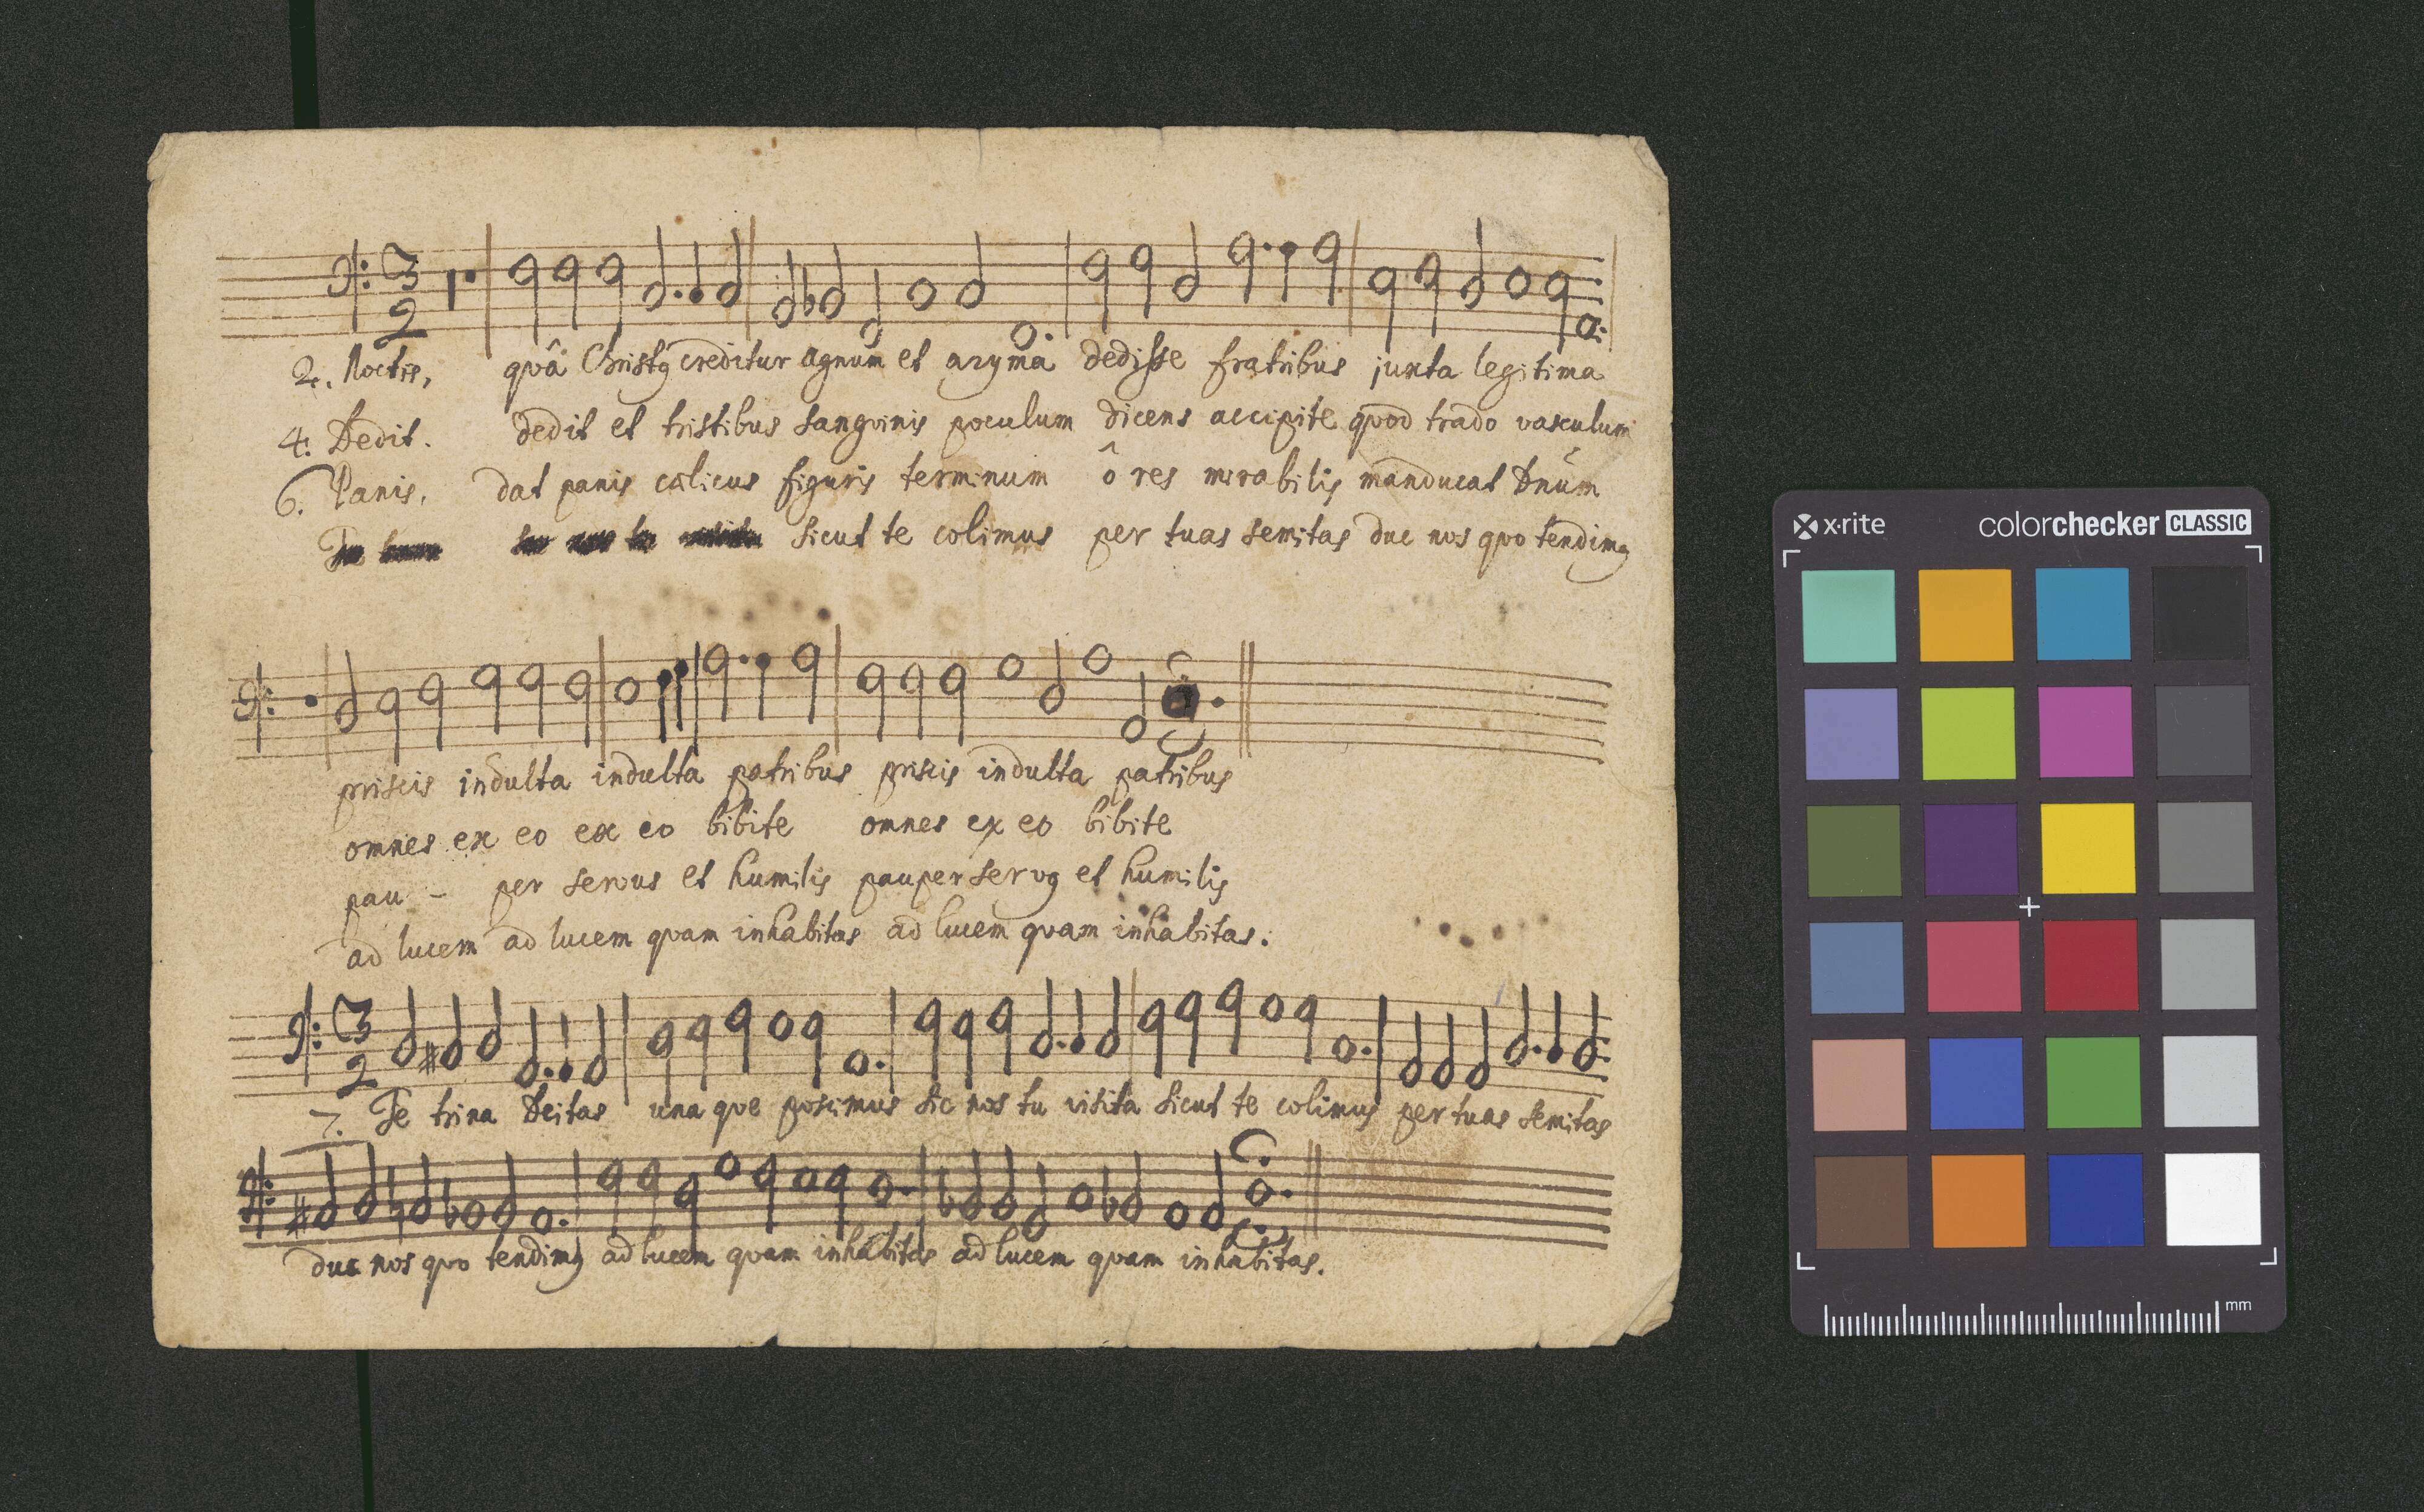 3
2
2. Noctis, quâ Christꝰ creditur agnum et azyma dedisse fratribus juxta legitima
4. Dedit. dedit et tristibus sanguinis poculum dicens accipite quod trado vasculum
6. Panis, dat panis cælicus figuris terminum ô res mirabilis manducat Dnum̄
sicut te colimus per tuas semitas duc nos quo tendimꝰ
priscis indulta indulta patribus priscis indulta patribus
omnes ex eo ex eo bibite omnes ex eo bibite
pau - per servus et humilis pauper servꝰ et humilis
ad lucem ad lucem quam inhabitas ad lucem quam inhabitas.
3
2
7. Te trina Deitas una que poscimus sic nos tu visita sicut te colimus per tuas semitas
duc nos quo tendimꝰ ad lucem quam inhabitas ad lucem quam inhabitas.
x·rite
colorchecker CLASSIC
mm